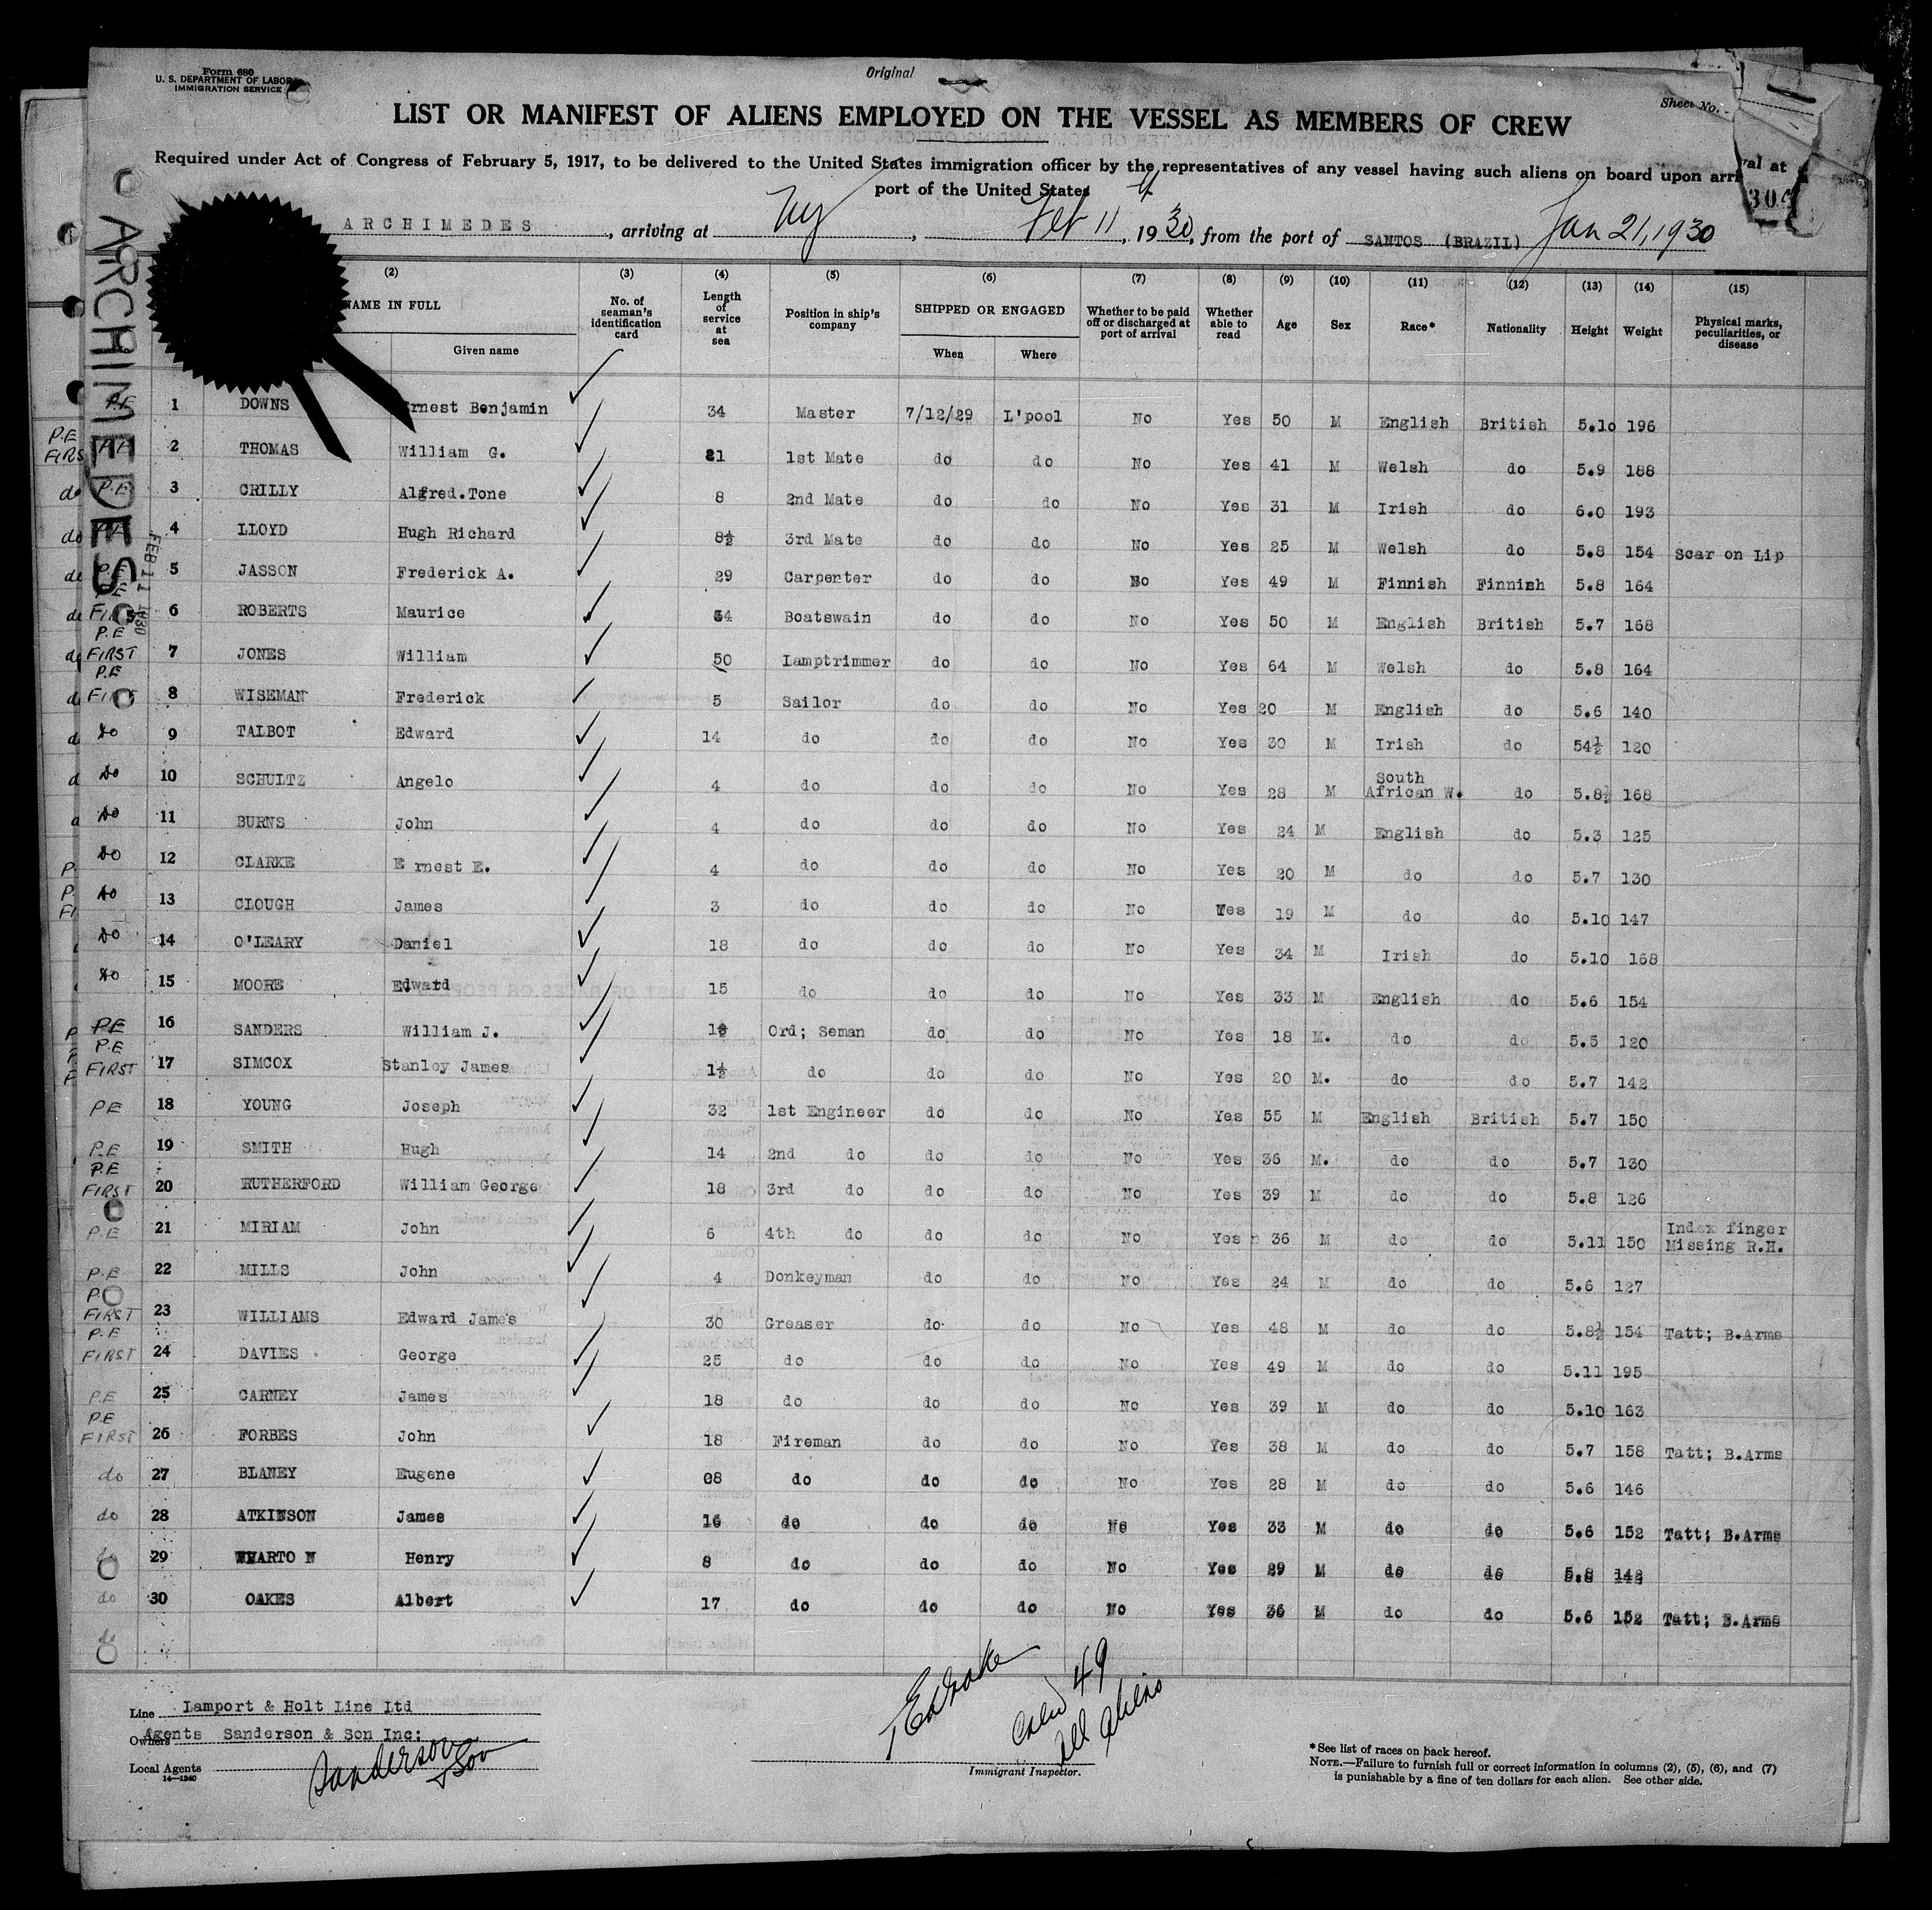 Form 680
U. S. DEPARTMENT OF LABOR
IMMIGRATION SERVICE
Original
Sheet No.
LIST OR MANIFEST OF ALIENS EMPLOYED ON THE VESSEL AS MEMBERS OF CREW
Required under Act of Congress of February 5, 1917, to be delivered to the United States immigration officer by the representatives of any vessel having such aliens on board upon arrival at
port of the United States
304
ARCHIMEDES, arriving at NY, Feb 11, 1930, from the port of SANTOS (BRAZIL) Jan 21, 1930
ARCHIMEDES
FEB 11 1930
(2) (3) (4) (5) (6) (7) (8) (9) (10) (11) (12) (13) (14) (15)
NAME IN FULL
Given name
No. of seaman's identification card
Length of service at sea
Position in ship's company
SHIPPED OR ENGAGED
When
Where
Whether to be paid off or discharged at port of arrival
Whether able to read
Age
Sex
Race*
Nationality
Height
Weight
Physical marks, peculiarities, or disease
P.E 1 DOWNS Ernest Benjamin 34 Master 7/12/29 L'pool No Yes 50 M English British 5.10 196
P.E 2 THOMAS William G. 21 1st Mate do do No Yes 41 M Welsh do 5.9 188
P.E 3 CRILLY Alfred.Tone 8 2nd Mate do do No Yes 31 M Irish do 6.0 193
4 LLOYD Hugh Richard 8½ 3rd Mate do do No Yes 25 M Welsh do 5.8 154 Scar on Lip
P.E 5 JASSON Frederick A. 29 Carpenter do do No Yes 49 M Finnish Finnish 5.8 164
P.E FIRST 6 ROBERTS Maurice 34 Boatswain do do No Yes 50 M English British 5.7 168
P.E FIRST 7 JONES William 50 Lamptrimmer do do No Yes 64 M Welsh do 5.8 164
P.E FIRST 8 WISEMAN Frederick 5 Sailor do do No Yes 20 M English do 5.6 140
do 9 TALBOT Edward 14 do do do No Yes 30 M Irish do 54½ 120
do 10 SCHULTZ Angelo 4 do do do No Yes 28 M South African W. do 5.8½ 168
do 11 BURNS John 4 do do do No Yes 24 M English do 5.3 125
do 12 CLARKE E rnest E. 4 do do do No Yes 20 M do do 5.7 130
do 13 CLOUGH James 3 do do do No Yes 19 M do do 5.10 147
do 14 O'LEARY Daniel 18 do do do No Yes 34 M Irish do 5.10 168
do 15 MOORE Edward 15 do do do No Yes 33 M English do 5.6 154
P.E 16 SANDERS William J. Ord; Seman do do No Yes 18 M. do do 5.5 120
P.E FIRST 17 SIMCOX Stanley James 1½ do do do No Yes 20 M. do do 5.7 142
PE 18 YOUNG Joseph 32 1st Engineer do do No Yes 55 M English British 5.7 150
P.E 19 SMITH Hugh 14 2nd do do do No Yes 36 M. do do 5.7 130
P.E FIRST 20 RUTHERFORD William George 18 3rd do do do No Yes 39 M do do 5.8 126
P.E 21 MIRIAM John 6 4th do do do No Yes 36 M do do 5.11 150 Index finger Missing R.H.
P.E 22 MILLS John 4 Donkeyman do do No Yes 24 M do do 5.6 127
FIRST 23 WILLIAMS Edward James 30 Greaser do do No Yes 48 M do do 5.8½ 154 Tatt; B.Arms
P.E FIRST 24 DAVIES George 25 do do do No Yes 49 M do do 5.11 195
P.E 25 CARNEY James 18 do do do No Yes 39 M do do 5.10 163
P.E FIRST 26 FORBES John 18 Fireman do do No Yes 38 M do do 5.7 158 Tatt; B.Arms
do 27 BLANEY Eugene 08 do do do No Yes 28 M do do 5.6 146
do 28 ATKINSON James 16 do do do No Yes 33 M do do 5.6 152 Tatt; B.Arms
29 WHARTO N Henry 8 do do do No Yes 29 M do do 5.8
do 30 OAKES Albert 17 do do do No Yes 36 M do do 5.6 152 Tatt; B.Arms
Line Lamport & Holt Line Ltd
Owners Agents Sanderson & Son Inc:
Local Agents Sanderson & Son
14—1240
49
all aliens
Immigrant Inspector.
*See list of races on back hereof.
NOTE.—Failure to furnish full or correct information in columns (2), (5), (6), and (7)
is punishable by a fine of ten dollars for each alien. See other side.